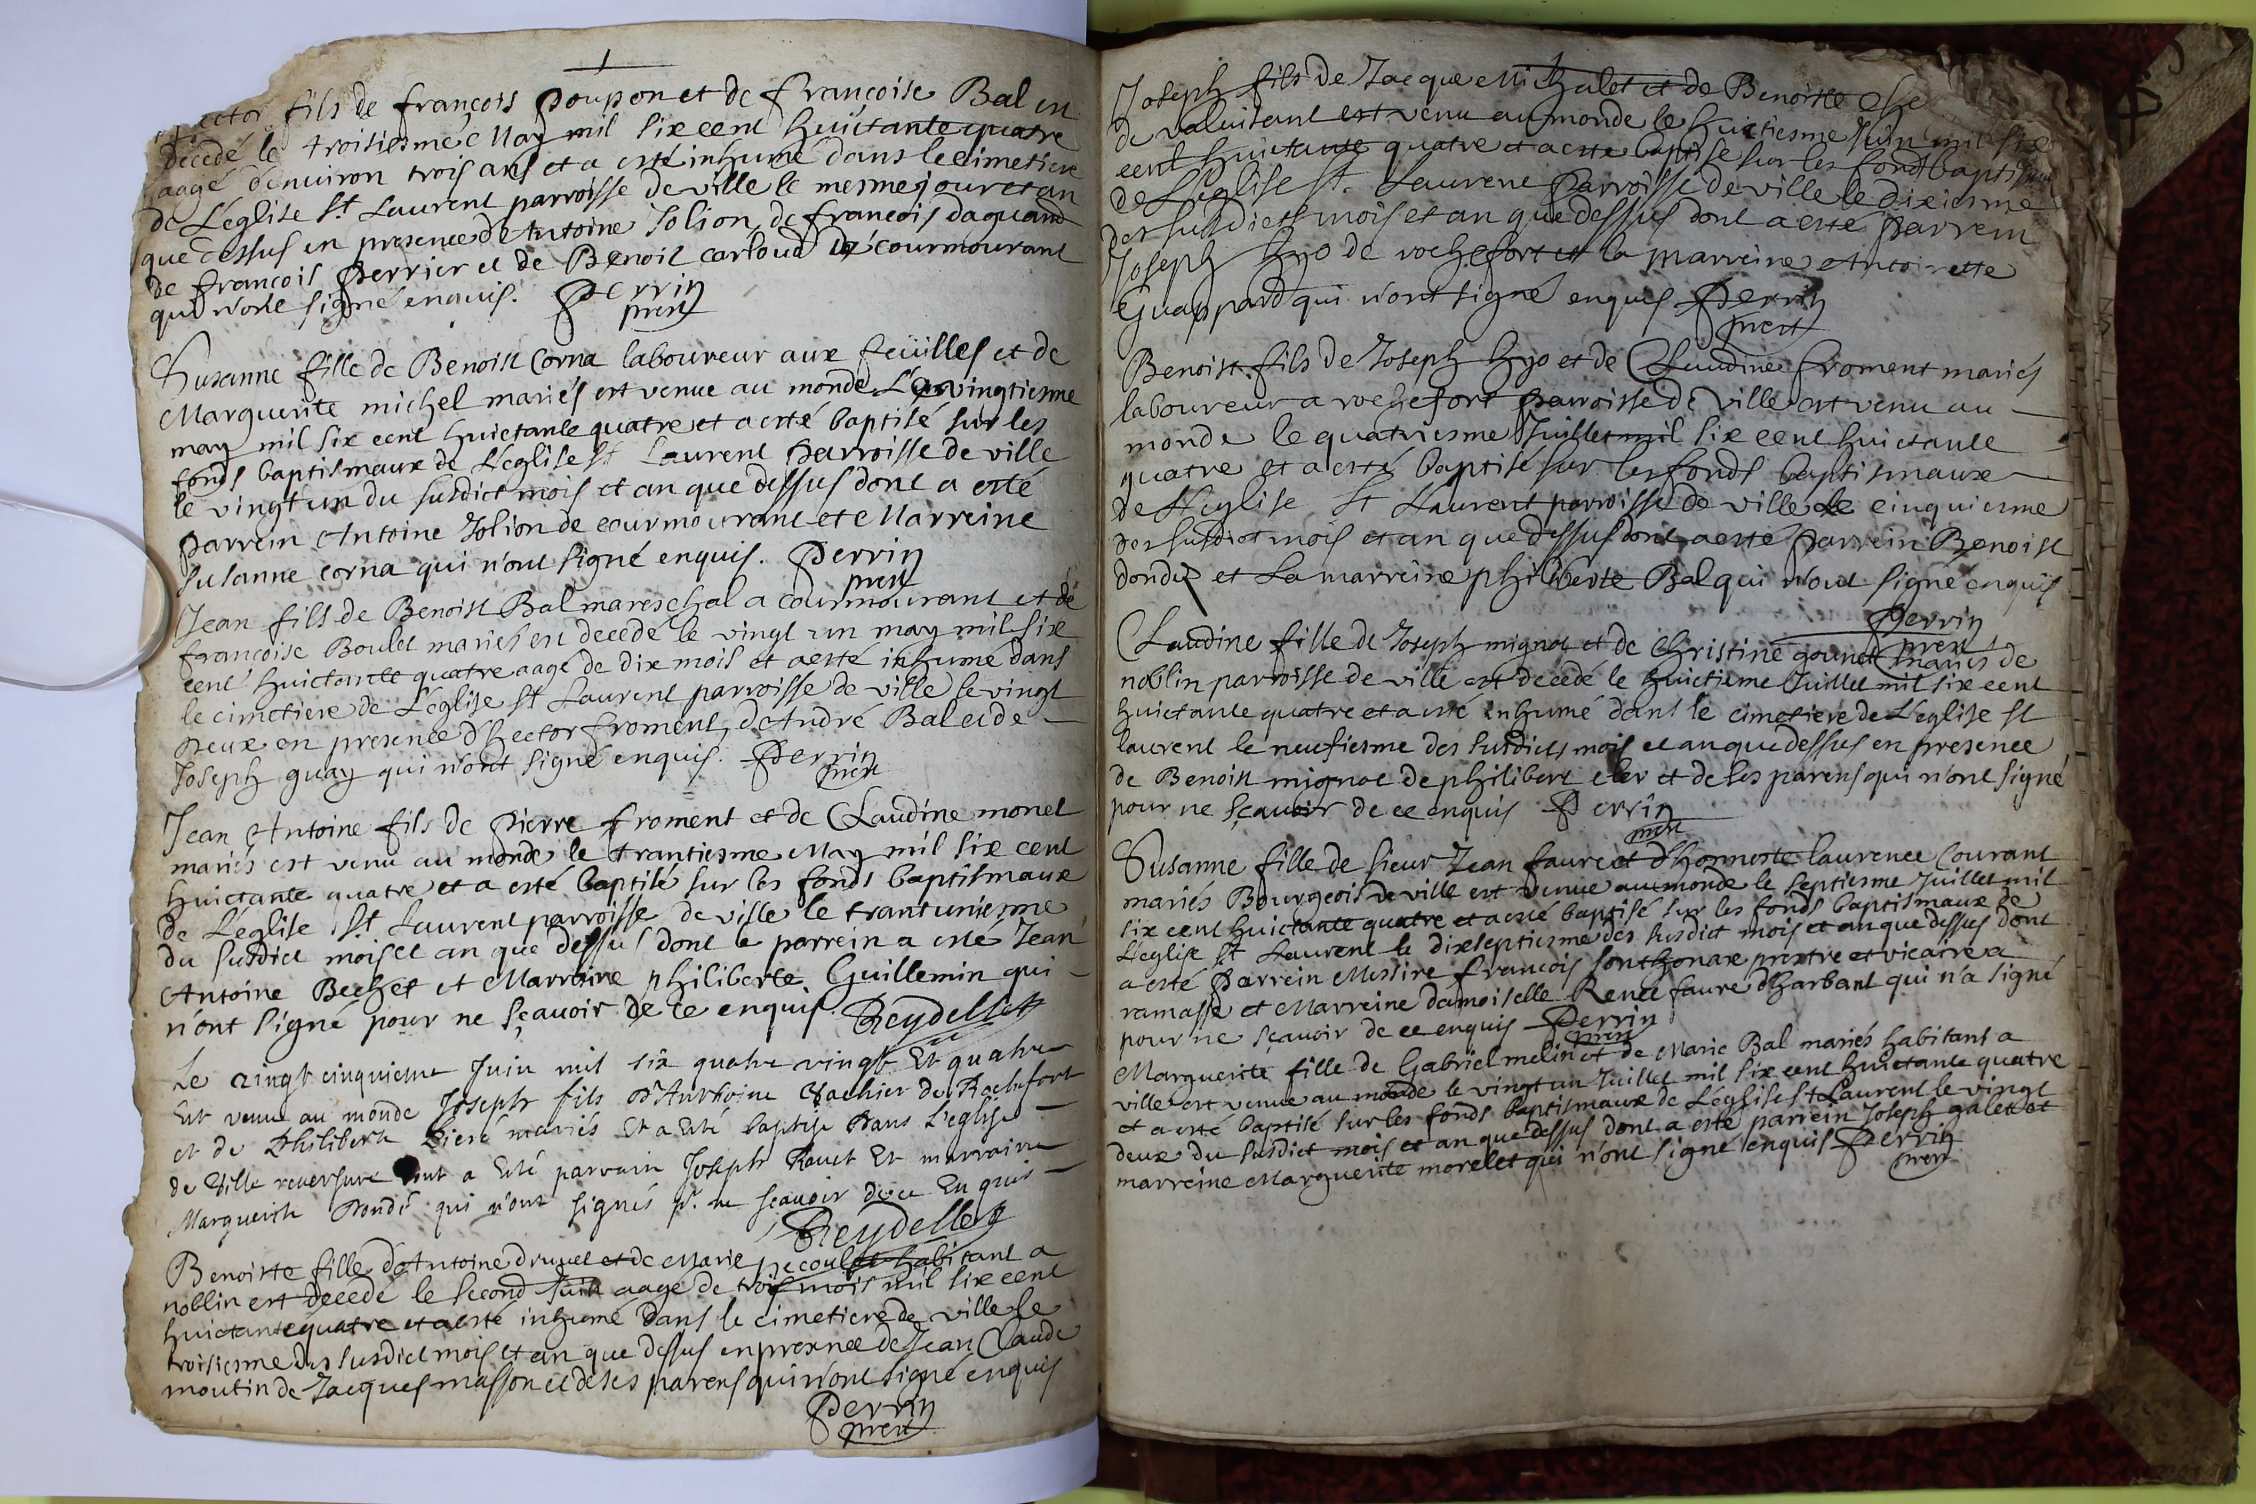 Hector fils de françois Poupon et de françoise Bal est
decedé le troisiesme May mil six cent huictante quatre
aagé d'enuiron trois ans et a esté inhumé dans le cimetiere
de L'eglise St Laurent parroisse de ville le mesme jour et an
que dessus en presence d'Antoine Jolion, de françois daquand
de françois Perrier et de Benoit carloud de courmourant
qui n'ont signé enquis. Perrin
pretr
Susanne fille de Benoist Corna laboureur aux feüilles et de
Marguerite michel mariés est venue au monde Le vingtiesme
may mil six cent huictante quatre et a esté baptisé sur les
fonds baptismaux de L'eglise St Laurent parroisse de ville
le vingt un du susdict mois et an que dessus dont a esté
parrein Antoine Jolion de courmourant et Marreine
susanne corna qui n'ont signé enquis. Perrin
pretr
Jean fils de Benoist Bal mareschal a courmourant et de
françoise Boulet mariés est decedé le vingt un may mil six
cent huictante quatre aagé de dix mois et a esté inhumé dans
le cimetiere de L'eglise St Laurent parroisse de ville le vingt
deux en presence d'hector froment, d'André Bal et de
Joseph guay qui n'ont signé enquis. Perrin
pretr
Jean Antoine fils de Pierre froment et de Claudine monet
mariés est venu au monde le trantiesme May mil six cent
huictante quatre et a esté baptisé sur les fonds baptismaux
de L'eglise St Laurent parroisse de ville le trantuniesme
du susdict mois et an que dessus dont le parrein a esté Jean
Antoine Bechet et Marreine philiberte Guillemin qui
n'ont signé pour ne sçauoir de ce enquis. Reydellet
Le vingt cinquiesme Juin mil six quatre vingt Et quatre
Est venu au monde Joseph fils d'Anthoine Vachier de Rochefort
et de Philiberte mariés Et a Esté baptisé Dans L'eglise
de Ville reuersure dont a Esté parrain Joseph Rouet Et marraine
Marguerite Dondé qui n'ont signés pr. ne sçauoir de ce Enquis
Reydellet
Benoiste fille d'Antoine druuet et de Marie pecoulet habitant a
noblin est decedé le second Juin aagé de trois mois mil six cent
huictante quatre et a esté inhumé dans le cimetiere de ville le
troisiesme des susdict mois et an que dessus en presence de Jean Claude
moutin de Jacques masson et de ses parens qui n'ont signé enquis
Perrin
pretr
Joseph fils de Jacque Michalet et de Benoiste
de valuitant est venu au monde le huictiesme Juin mil six
cent huictante quatre et a esté baptisé sur les fonds baptismaux
de L'eglise St. Laurent Parroisse de ville le dixiesme
des susdicts mois et an que dessus dont a esté parrein
Joseph hyo de rochefort et la marreine Antoinette
Guappard qui n'ont signé enquis Perrin
pretr
Benoist fils de Joseph hyo et de Claudine froment mariés
laboureur a rochefort parroisse de ville est venu au
monde le quatriesme Juillet mil six cent huictante
quatre et a esté baptisé sur les fonds baptismaux
de L'eglise St Laurent parroisse de ville le cinquiesme
des susdict mois et an que dessus dont a esté parrein Benoist
dondé et La marreine philiberte Bal qui n'ont signé enquis
Perrin
pretr
Claudine fille de Joseph mignot et de Christine gounet mariés de
noblin parroisse de ville est decedé le huictieme Juillet mil six cent
huictante quatre et a esté inhumé dans le cimetiere de L'eglise St
laurent le neufiesme des susdicts mois et an que dessus en presence
de Benoist mignot de philibert cler et de ses parens qui n'ont signé
pour ne sçauoir de ce enquis Perrin
pretr
Susanne fille de sieur Jean faure et d'honneste laurence Courant
mariés Bourgeois de ville est venue au monde le septiesme Juillet mil
six cent huictante quatre et a esté baptisé sur les fonds baptismaux de
L'eglise St Laurent le dixseptiesme des susdict mois et an que dessus dont
a esté parrein Messire françois sonthonax prestre et vicaire a
ramasse et Marreine damoiselle Renée faure d'harbant qui n'a signé
pour ne sçauoir de ce enquis Perrin
pretr
Marguerite fille de Gabriel melin et de Marie Bal mariés habitans a
ville est venue au monde le vingt un Juillet mil six cent huictante quatre
et a esté baptisé sur les fonds baptismaux de L'eglise St Laurent le vingt
deux du susdict mois et an que dessus dont a esté parrein Joseph galet et
marreine Marguerite morelet qui n'ont signé enquis Perrin
pretr